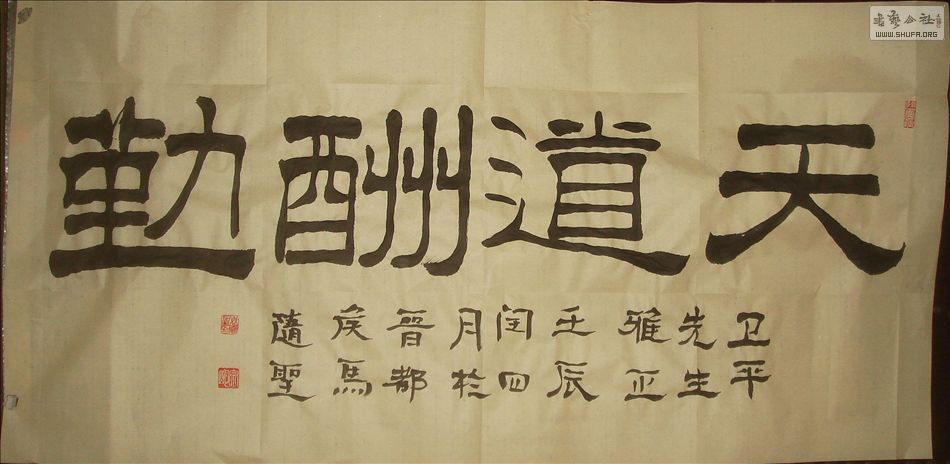 天道酬勤
卫平
先生
雅正
壬辰
闰四
月於
晋都
侯马
隨聖
書藝公社
WWW.SHUFA.ORG